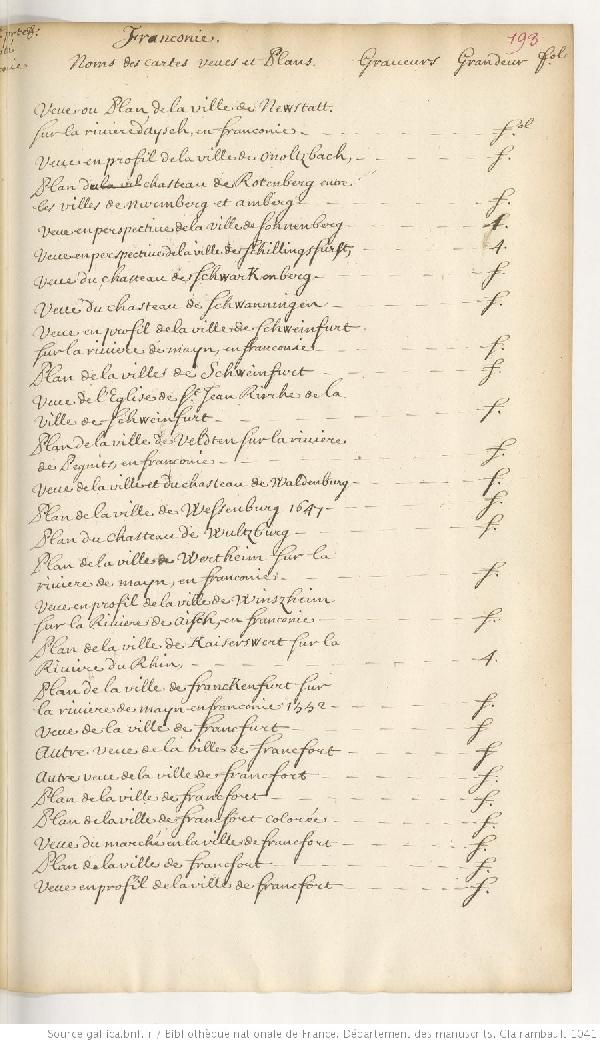 Franconie.
193
Noms des cartes veues et Plans. Graueurs Grandeur fol.
Veue ou Plan de la ville de Newstatt.
sur la riviere daysch, en franconie. f. ol
Veue en profil de la ville de onoltzbach, f.
Plan de la vil chasteau de Rotenberg entre
les villes de nuremberg et amberg. f.
Veue en perspective de la ville de sonnenberg 4.
Veue en perspective de la ville de schillingsfurst, 4.
Veue du chasteau de schwarkenberg. f.
Veue du chasteau de schwanningen f.
Veue en profil de la ville de schweinfurt.
sur la riviere de mayn, en franconie f.
Plan de la villes de Schweinfurt f.
Veue de l'Eglise de St. Jean Kirche de la
Ville de schweinfurt. f.
Plan de la ville de Veldten sur la riviere
de Pegnits, en franconie f.
Veue de la ville et du chasteau de Waldenburg. f.
Plan de la ville de Wessenburg 1647. f.
Plan du Chasteau de Wultzburg f.
Plan de la ville de Wertheim sur la
riviere de mayn, en franconie. f.
Veue en profil de la ville de Winszheim
sur la Riviere de aisch, en franconie f.
Plan de la ville de Kaiserswert sur la
Riviere du Rhin, 4.
Plan de la ville de franckenfurt sur
la riviere de mayn en franconie 1552 f.
Veue de la ville de francfurt f
Autre veue de la ville de francfort f
Autre veue de la ville de francfort f.
Plan de la ville de francfort f.
Plan de la ville de francfort colorée f.
Veue du marché en la ville de francfort f.
Plan de la ville de francfort f.
Veue en profil de la ville de francfort f.
Source gallica.bnf.fr / Bibliothèque nationale de France. Département des manuscrits. Clairambault 1041